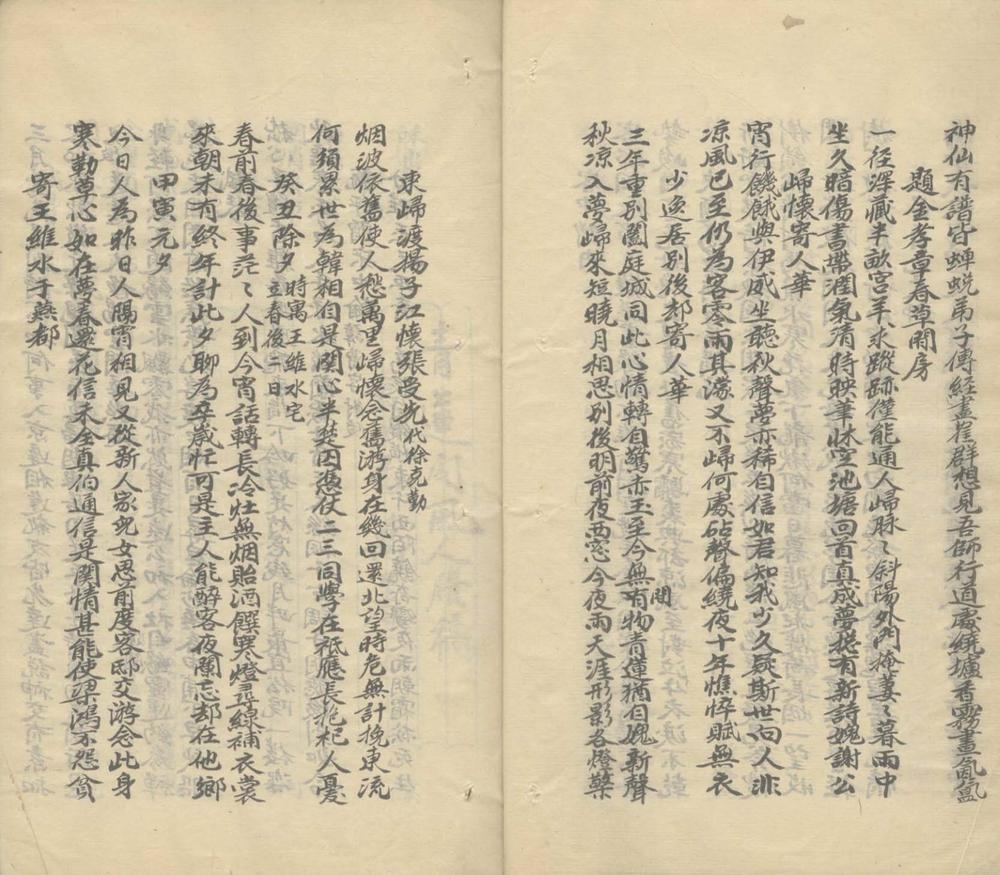 神仙有譜皆蟬蛻弟子傳經畫崖群想見吾師行道處繞壚香霧畫氤氳
題金孝章春草閒房
一徑深藏半畝宮羊求蹤跡僅能通人歸脉〻斜陽外門掩萋〻暮雨中
坐久暗傷書帶潤氣清時映筆牀空池塘回首真成夢捲有新詩媿謝公
歸懷寄人華
宵行饑餓與伊威坐聽秋聲夢亦稀自信如君知我少久疑斯世向人非
凉風已至仍為客零雨其濛又不歸何處砧聲偏繞夜十年憔悴賦無衣
少逸居別後却寄人華
三年重別闔閭庭城同此心情轉自驚赤玉至今無有物青蓮猶自媿新聲
秋凉入夢歸來短曉月相思別後明前夜西窓今夜雨天涯形影各燈檠
東歸渡揚子江懷張受先代徐克勤
烟波依舊使人愁萬里歸懷念舊游身在幾回還北望時危無計挽東流
何須累世為韓相自是関心半楚囚憑仗二三同學在祗應長抱杞人憂
癸丑除夕時寓王維水宅立春後二日
春前春後事茫〻人到今宵話轉長冷灶無烟貽酒饌寒燈尋線補衣裳
來朝未有終年計此夕聊為卒歲忙可是主人能醉客夜闌忘却在他鄉
甲寅元夕
今日人為昨日人隔宵相見又從新人家兒女思前度客邸交游念此身
寒勒草心如在夢春遲花信未全真伯通信是関情甚能使梁鴻不怨貧
寄王維水于燕都